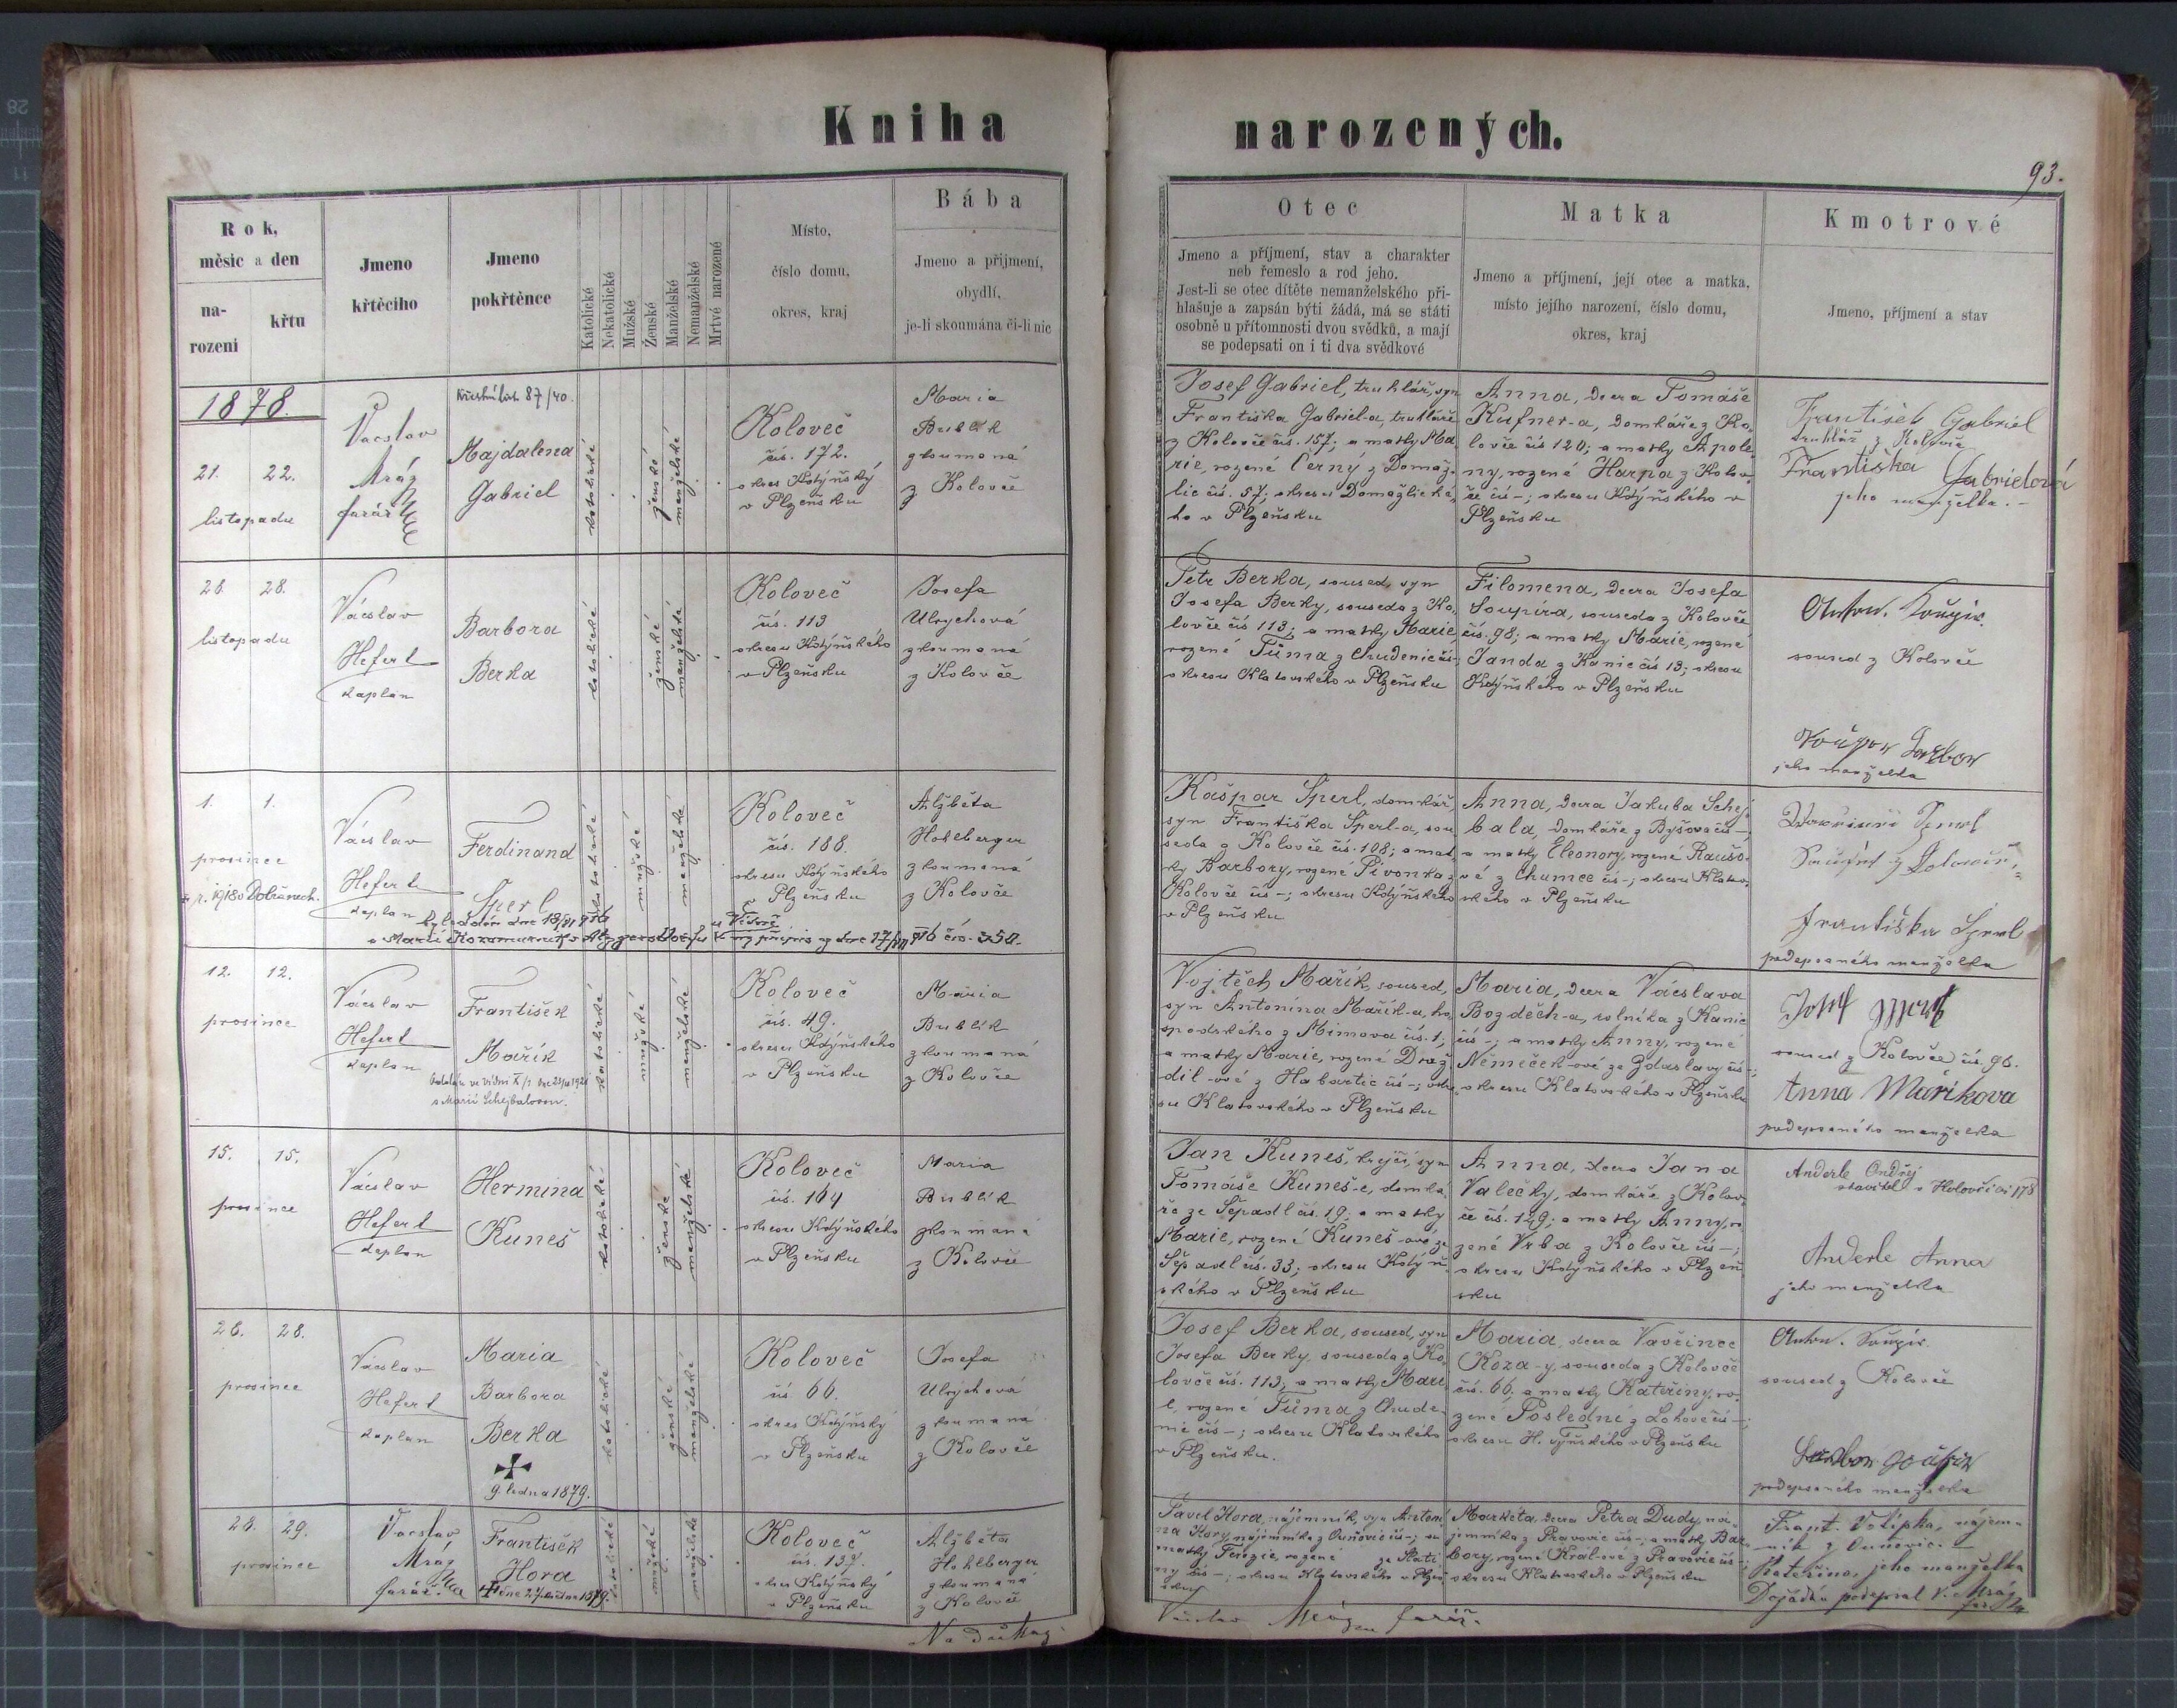 Kniha
narozených.
93.
Rok,
měsíc a den
na-
rození
křtu
Jmeno
křtěcího
Jmeno
pokřtěnce
Katolické
Nekatolické
Mužské
Ženské
Manželské
Nemanželské
Mrtvě narozené
Místo,
číslo domu,
okres, kraj
Bába
Jmeno a přijmení,
obydlí,
je-li skoumána či-li nic
Otec
Jmeno a příjmení, stav a charakter
neb řemeslo a rod jeho.
Jest-li se otec dítěte nemanželského při-
hlašuje a zapsán býti žádá, má se státi
osobně u přítomnosti dvou svědků, a mají
se podepsati on i ti dva svědkové
Matka
Jmeno a příjmení, její otec a matka,
místo jejího narození, číslo domu,
okres, kraj
Kmotrové
Jmeno, příjmení a stav
1878.
21. 22.
listopadu
Vácslav
Mráz
farář
87/40.
Majdalena
Gabriel
katolické
ženské
manželské
Koloveč
čís. 172.
okres Kdýňský
v Plzeňsku
Maria
Bublík
zkoumaná
z Kolovče
Josef Gabriel, truhlář, syn
Františka Gabriel-a, truhláře
z Kolovče čís. 157; a matky Ma-
rie, rozené Černý z Domaž-
lic čís. 57; okresu Domažlické-
ho v Plzeňsku
Anna, dcera Tomáše
Kufner-a, domkáře z Ko-
lovče čís 120; a matky Apole-
ny, rozené Harpa z Kolov-
če čís -; okresu Kdýňského v
Plzeňsku
František Gabriel
truhlář z Kolovče
Františka Gabrielová
jeho manželka.-
28. 28.
listopadu
Vácslav
Hefert
kaplan
Barbora
Berka
katolické
ženské
manželské
Koloveč
čís. 113
okresu Kdýňského
v Plzeňsku
Josefa
Ulrychová
zkoumaná
z Kolovče
Petr Berka, soused, syn
Josefa Berky, souseda z Ko-
lovče čís 113; a matky Marie,
rozené Tůma z Chudenic čís-;
okresu Klatovského v Plzeňsku
Filomena, dcera Josefa
Soupíra, souseda z Kolovče
čís. 98; a matky Marie, rozené
Janda z Kanic čís 13; okresu
Kdýňského v Plzeňsku
Anton. Soupír.
soused z Kolovče
jeho manželka
1. 1.
prosince
Vácslav
Hefert
kaplan
Ferdinand
Šperl
katolické
mužské
manželské
Koloveč
čís. 188.
okresu Kdýňského
v Plzeňsku
Alžběta
Hohlberger
zkoumaná
z Kolovče
Kašpar Šperl, domkář,
syn Františka Šperl-a, sou-
seda z Kolovče čís. 108; a mat-
ky Barbory, rozené Pivonka z
Kolovče čís -; okresu Kdýňského
v Plzeňsku
Anna, dcera Jakuba Schej-
bala, domkáře z Byšova čís -;
a matky Eleonory, rozené Raušo-
vé z Chumce čís -; okresu Klatov-
ského v Plzeňsku
Františka Šperl
podepsaného manželka
12. 12.
prosince
Vácslav
Hefert
kaplan
František
Mařík
s Marií Schejbalovou.
katolické
mužské
manželské
Koloveč
čís. 49.
okresu Kdýňského
v Plzeňsku
Maria
Bublík
zkoumaná
z Kolovče
Vojtěch Mařík, soused,
syn Antonína Mařík-a, ho-
spodského z Mimova čís. 1;
a matky Marie, rozené Draž-
dil-ové z Habartic čís -; okre-
su Klatovského v Plzeňsku
Maria, dcera Vácslava
Bozděch-a, rolníka z Kanic
čís -; a matky Anny, rozené
Němeček-ové ze Zdaslavy čís -;
okresu Klatovského v Plzeňsku
Josef
soused z Kolovče čís. 96.
Anna Maříkova
podepsaného manželka
15. 15.
prosince
Vácslav
Hefert
kaplan
Hermina
Kuneš
katolické
ženské
manželské
Koloveč
čís. 164
okresu Kdýňského
v Plzeňsku
Maria
Bublík
zkoumaná
z Kolovče
Jan Kuneš, krejčí, syn
Tomáše Kuneš-e, domká-
ře ze Sepadl čís. 19; a matky
Marie, rozené Kuneš-ové ze
Sepadl čís. 33; okresu Kdýň-
ského v Plzeňsku
Anna, dcera Jana
Valečky, domkáře z Kolov-
če čís. 129; a matky Anny, ro-
zené Vrba z Kolovče čís -;
okresu Kdýňského v Plzeň-
sku
Anderle Ondřej
stavitel v Kolovči čís 178
Anderle Anna
jeho manželka
28. 28.
prosince
Vácslav
Hefert
kaplan
Maria
Barbora
Berka
9. ledna 1879.
katolické
ženské
manželské
Koloveč
čís. 66.
okres Kdýňský
v Plzeňsku
Josefa
Ulrychová
zkoumaná
z Kolovče
Josef Berka, soused, syn
Josefa Berky, souseda z Ko-
lovče čís. 113; a matky Mari-
e, rozené Tůma z Chude-
nic čís -; okresu Klatovského
v Plzeňsku.
Maria, dcera Vavřince
Koza-y, souseda z Kolovče
čís. 66; a matky Kateřiny, ro-
zené Poslední z Lohovče čís -;
okresu H. Týnského v Plzeňsku
Anton. Soupír.
soused z Kolovče
podepsaného manželka
28. 29.
prosince
Vácslav
Mráz
farář.
František
Hora
katolické
mužské
manželské
Koloveč
čís. 139.
okres Kdýňský
v Plzeňsku
Alžběta
Hohlberger
zkoumaná
z Kolovče
Pavel Hora, nájemník, syn Antoní-
na Hory, nájemníka z Únějovic čís -; a
matky Terezie, rozené ze Slati-
ny čís -; okresu Klatovského v Plzeň-
sku
Markéta, dcera Petra Dudy, ná-
jemníka z Pavovic čís -; a matky Bar-
bory, rozené Král-ové z Pavovic čís -;
okresu Klatovského v Plzeňsku
Frant. Votípka, nájem-
ník
Kateřina, jeho manželka
Dožádán podepsal V. Mráz
Na důkaz
Vácslav Mráz farář.